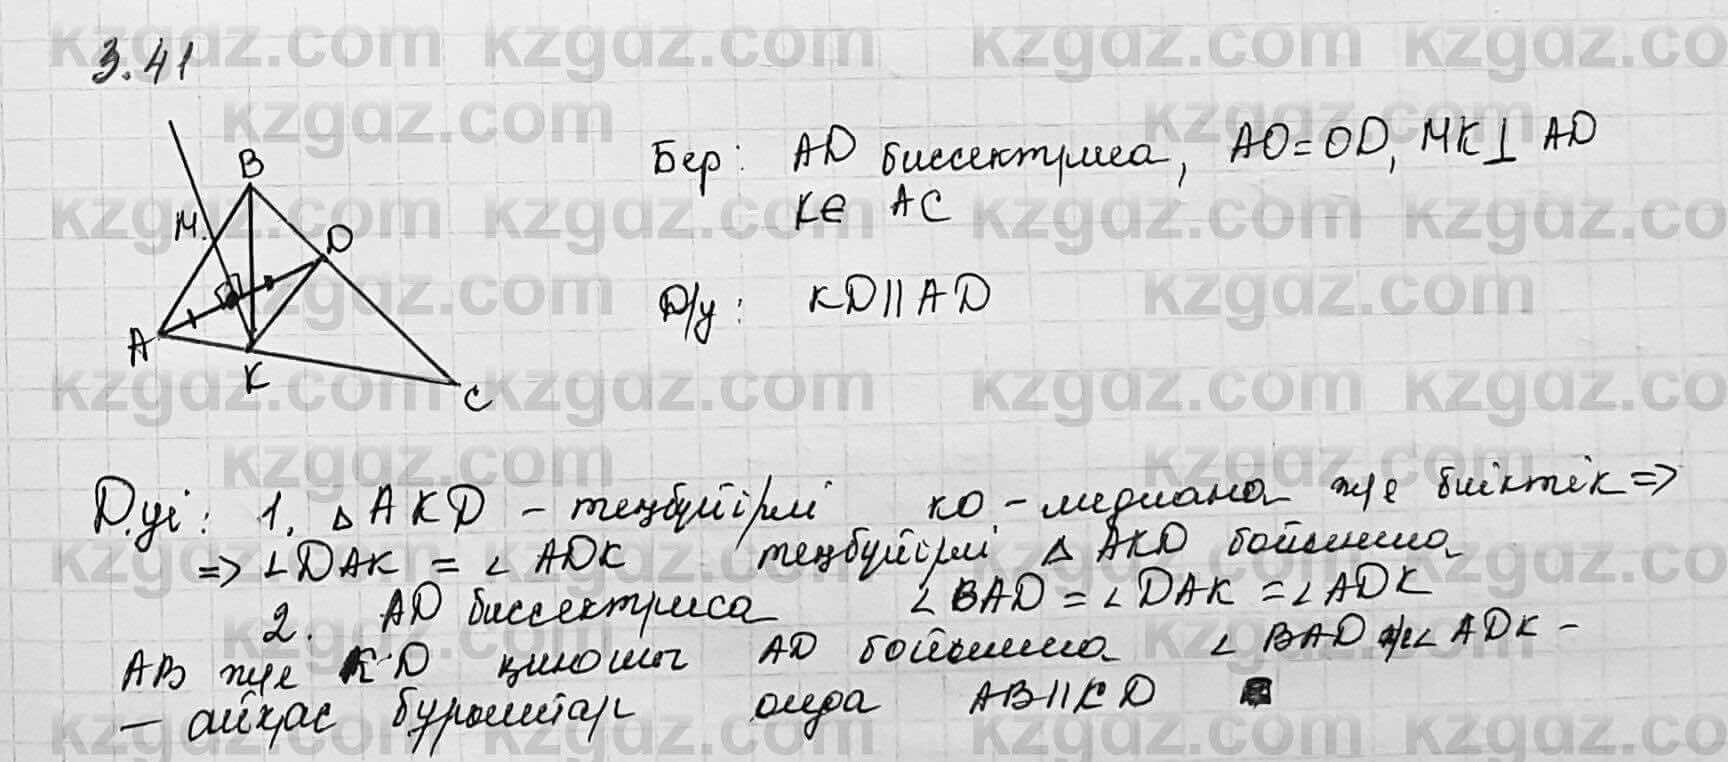 3.41
Бер: AD биссектриса, AO=OD, MK⊥ AD
K∈ AC
B
M.
D
A
K
C
D/у: KD||AD
D.уі: 1. △ AKD - теңбүйірлі KO - медиана және биіктік =>
=> ∠DAK = ∠ADK теңбүйірлі △ AKD бойынша
2. AD биссектриса ∠BAD = ∠DAK = ∠ADK
AB және KD қиюшы AD бойынша ∠BAD және ∠ADK -
- айқас бұрыштар онда AB||KD
kzgaz.com